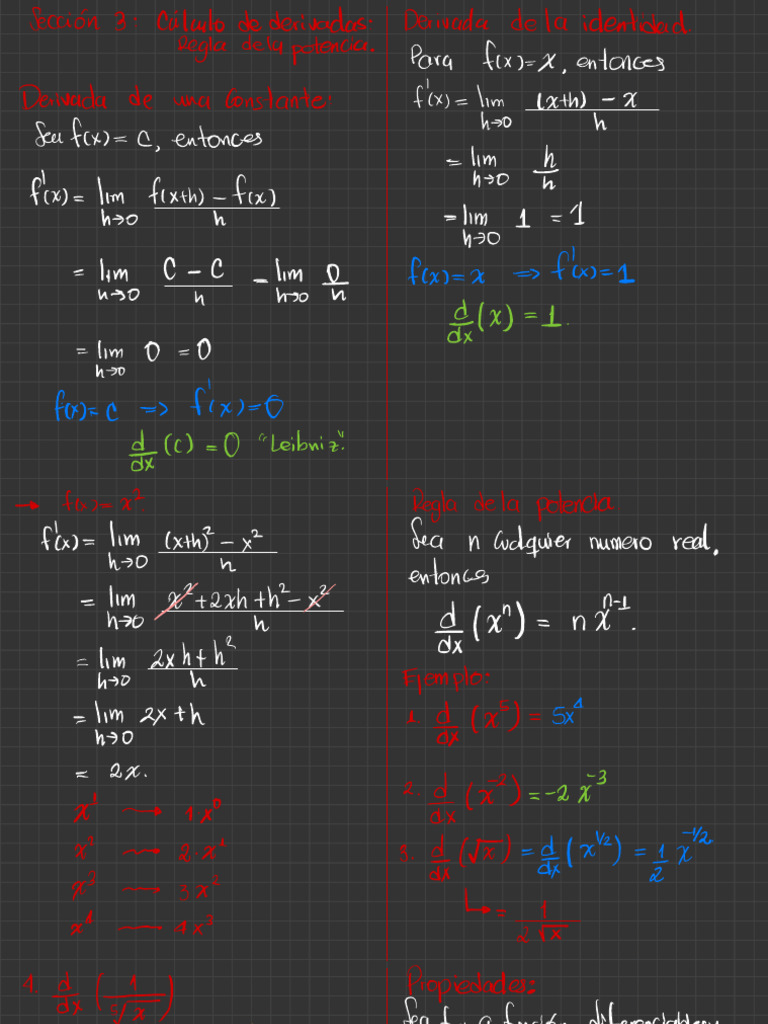 Sección 3: Cálculo de derivadas:
Regla de la potencia.
Derivada de una Constante:
Sea f(x) = C, entonces
f'(x) = lim h→0 (f(x+h) - f(x))/h
= lim h→0 (C - C)/h - lim h→0 0/h
= lim h→0 0 = 0
f(x) = C ⇒ f'(x) = 0
d/dx (C) = 0 "Leibniz".
→ f(x) = x²
f'(x) = lim h→0 ((x+h)² - x²)/h
= lim h→0 (x² + 2xh + h² - x²)/h
= lim h→0 (2xh + h²)/h
= lim h→0 2x + h
= 2x.
x¹ → 1x⁰
x² → 2·x¹
x³ → 3x²
x⁴ → 4x³
4. d/dx (1/⁵√x)
Derivada de la identidad
Para f(x) = x, entonces
f'(x) = lim h→0 ((x+h) - x)/h
= lim h→0 h/h
= lim h→0 1 = 1
f(x) = x ⇒ f'(x) = 1
d/dx (x) = 1.
Regla de la potencia
Sea n cualquier numero real,
entonces
d/dx (xⁿ) = n xⁿ⁻¹.
Ejemplo:
1. d/dx (x⁵) = 5x⁴
2. d/dx (x⁻²) = -2x⁻³
3. d/dx (√x) = d/dx (x^1/2) = 1/2 x^-1/2
↳ = 1/(2√x)
Propiedades: